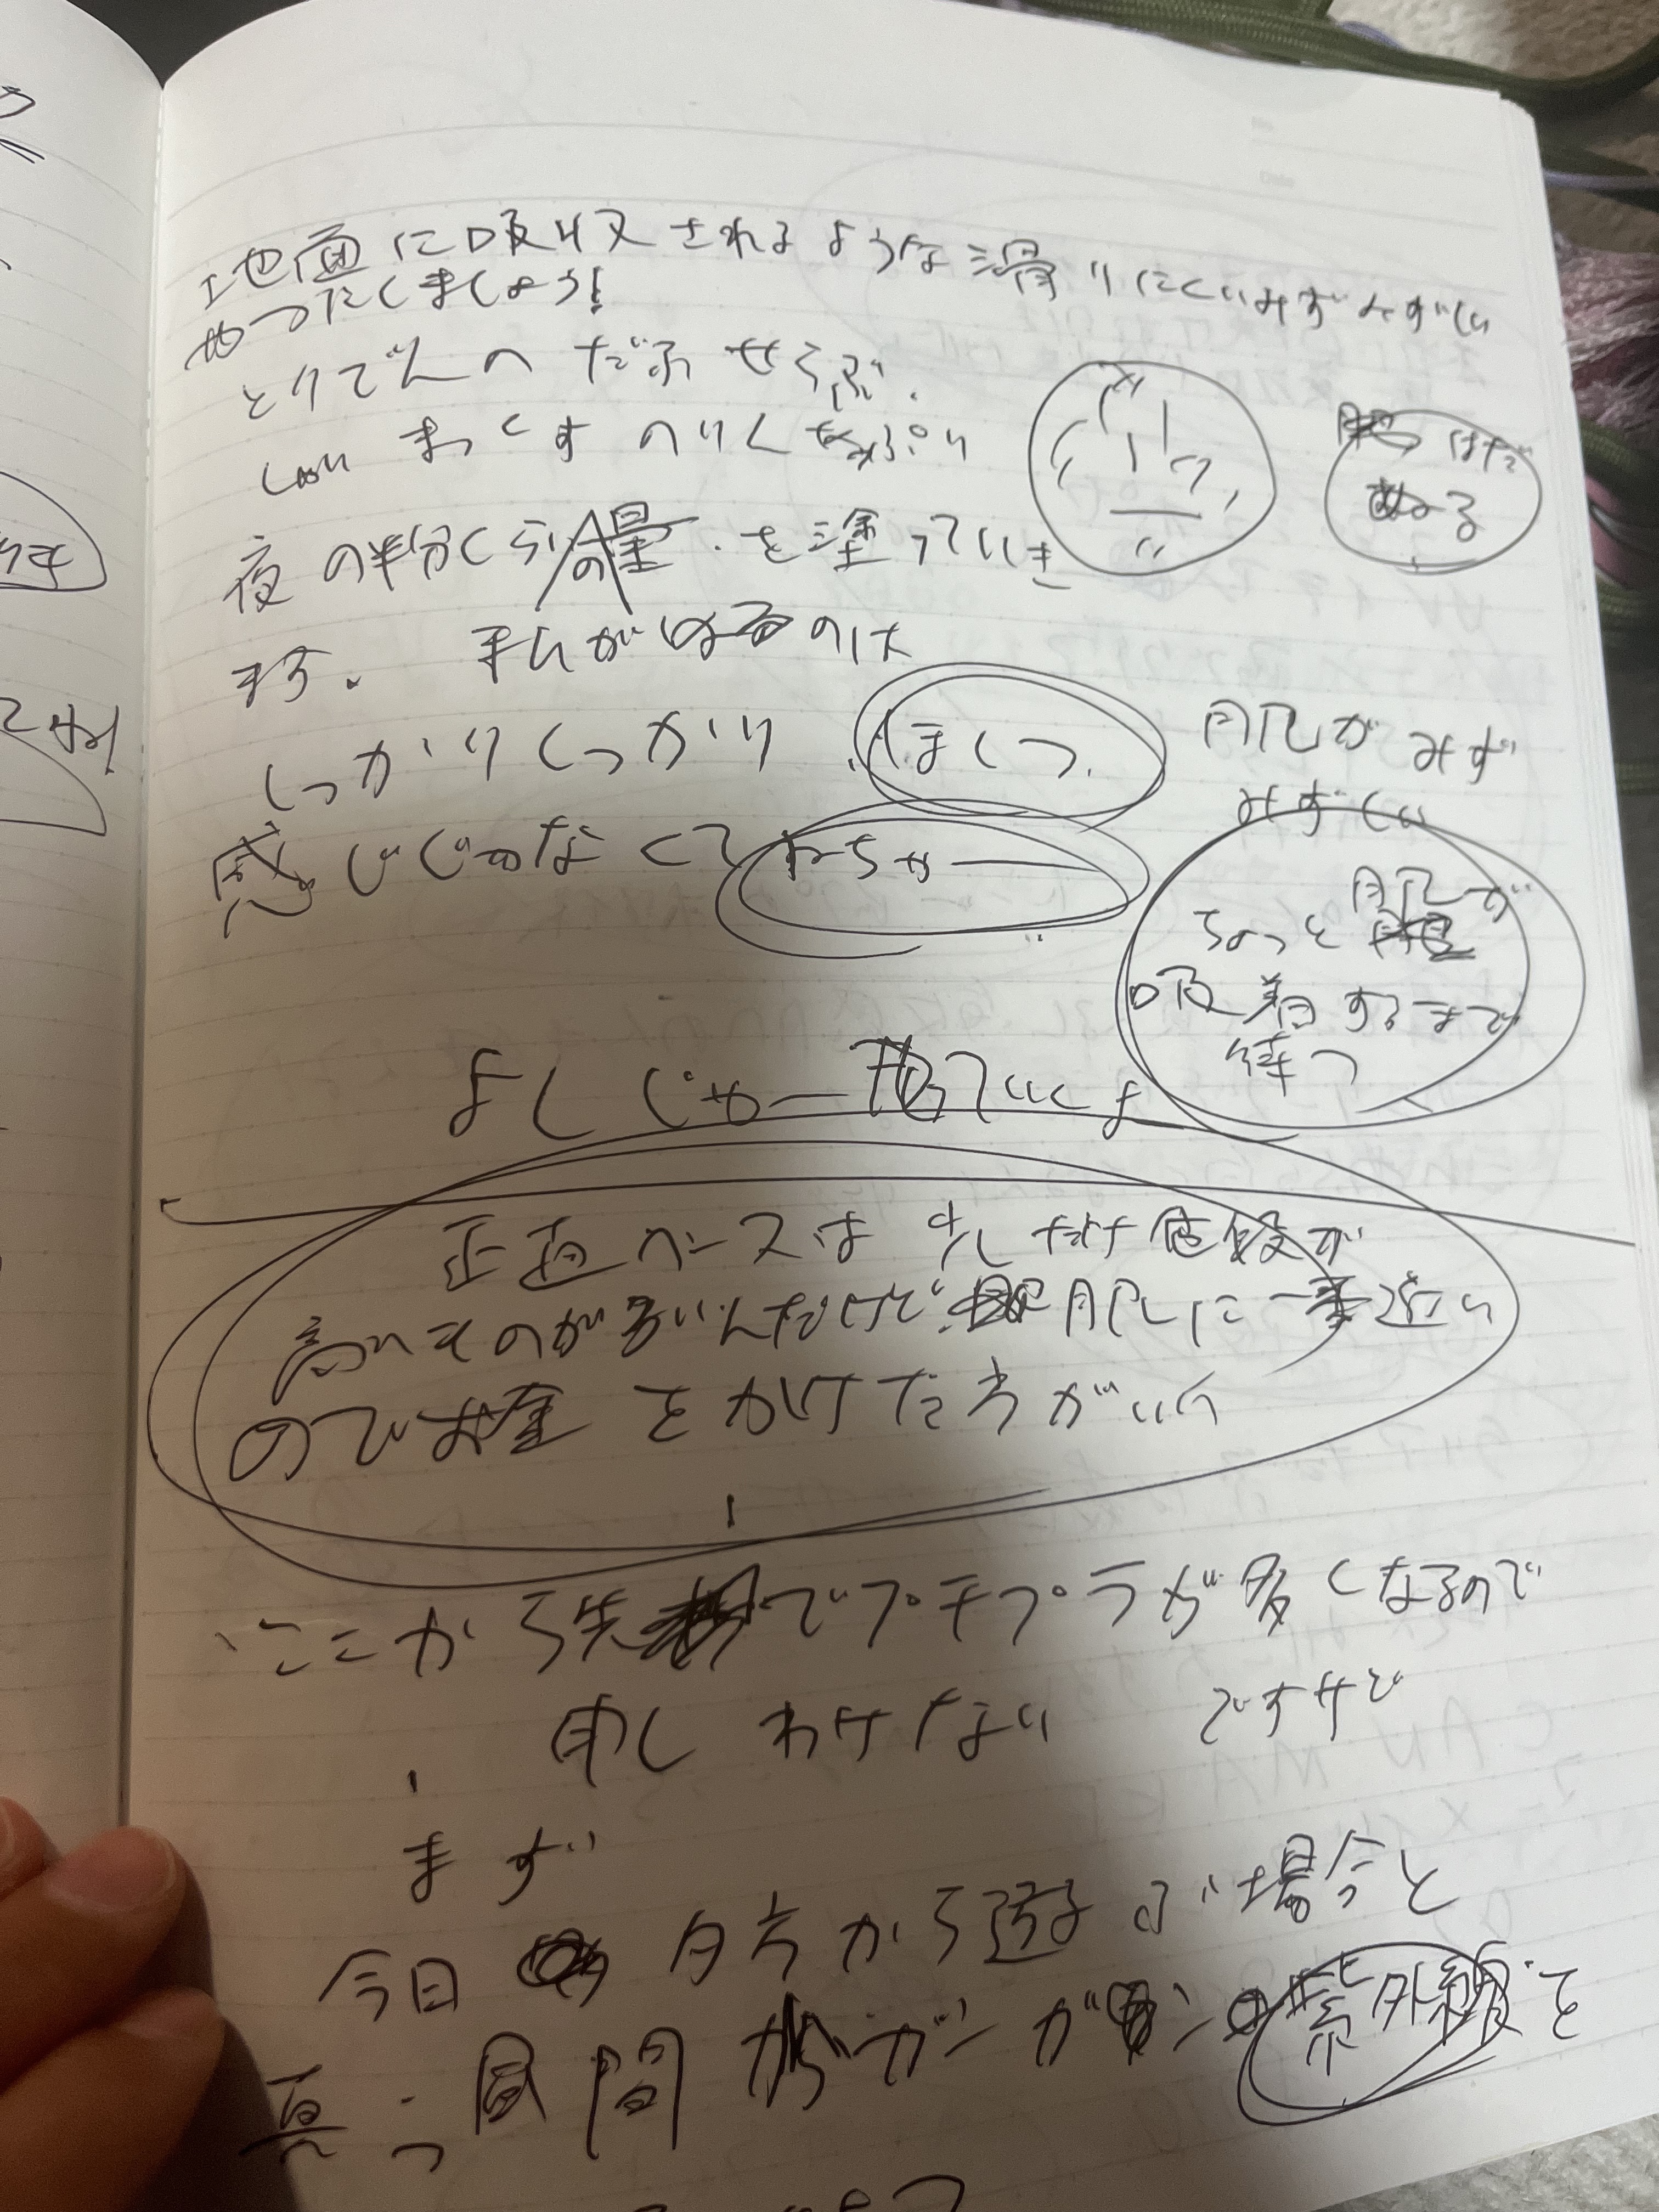 地面に吸収されるような滑りにくいみずみずしい
やつにしましょう!
とりでんの だふせらぶ.
しおい まっくす のりくちぷり
夜の半分くらいの量.を塗っていき
ます. 私がはるのは
肌はだ
ぬる
しっかりしっかり ほしつ
感じじゃなくて ねちゃー
肌がみず
みずしい
ちょっと肌で
吸着するまで
待つ
よし じゃー塗っていくよ
正直ベースは 少しだけ値段が
高いものが多いんだけど. 肌に一番近い
のでお金をかけた方がいい
ここから先でプチプラが多くなるので
申しわけない ですけど
まず
今日 夕方から遊ぶ場合と
真っ昼間 ガンガン 紫外線を